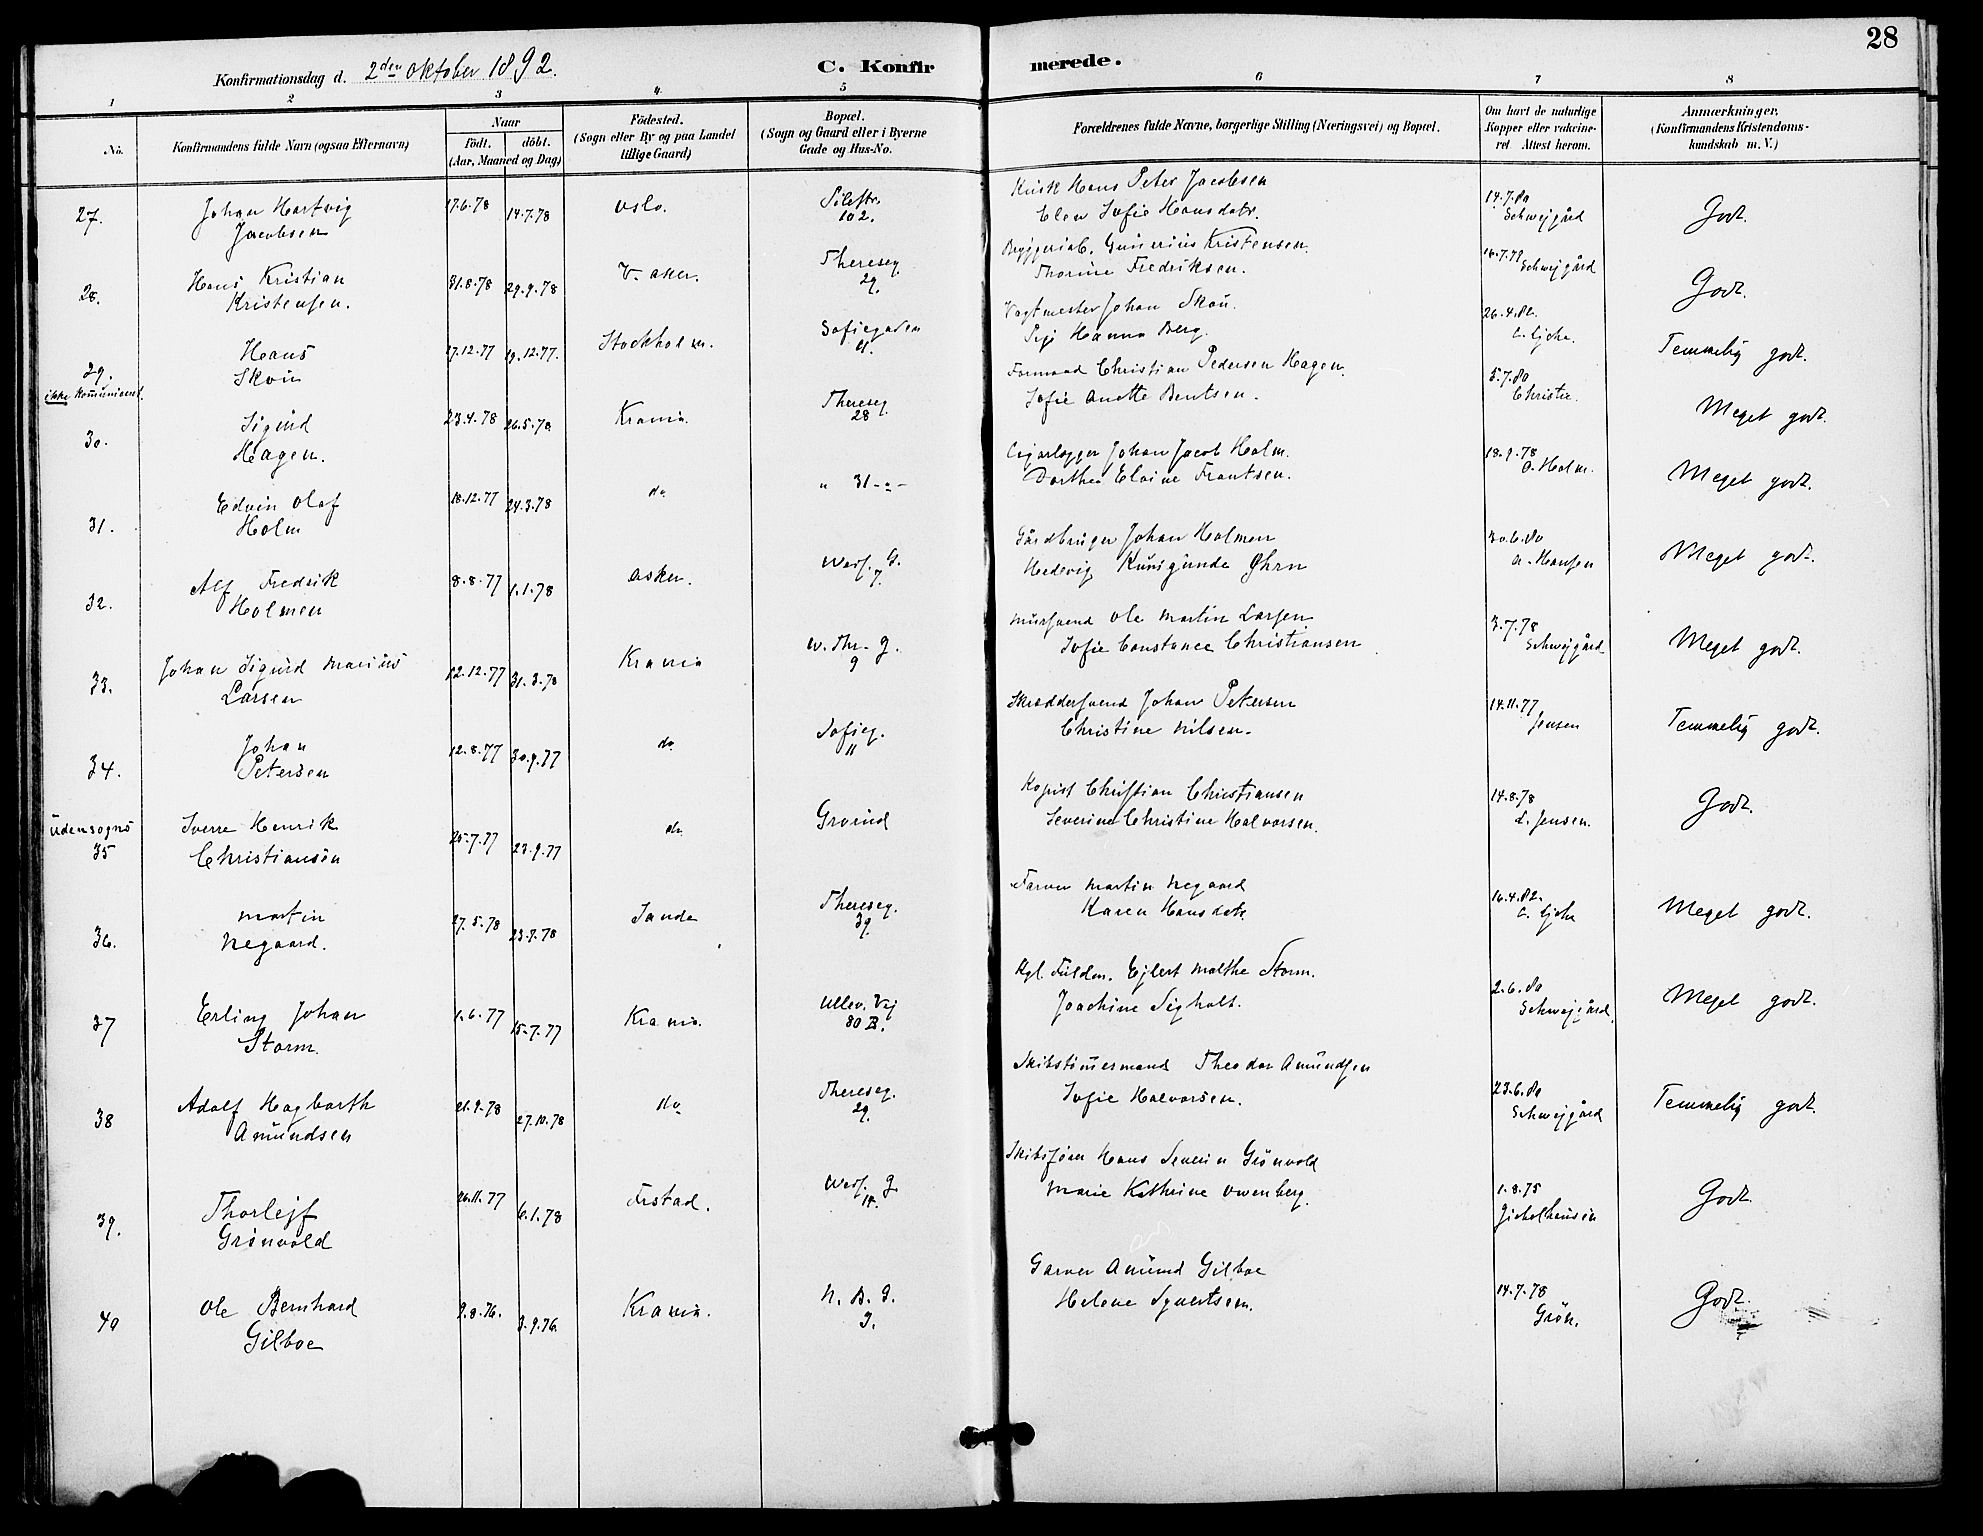 28
Konfirmationsdag d. 2den oktober 1892.
C. Konfirmerede.
1 2 3 4 5 6 7 8
No.
Konfirmandens fulde Navn (ogsaa Efternavn)
Naar
födt. döbt.
(Aar, Maaned og Dag)
Födested.
(Sogn eller By og paa Landet
tillige Gaard)
Bopæl.
(Sogn og Gaard eller i Byerne
Gade og Hus-No.
Forældrenes fulde Navne, borgerlige Stilling (Næringsvei) og Bopæl.
Om havt de naturlige
Kopper eller vakcine-
ret Attest herom.
Anmærkninger.
(Konfirmandens Kristendoms-
kundskab m. V.)
27. Johan Hartvig 17.6.78 14.7.78 Oslo. Pilestr. Kusk Hans Peter Jacobsen 14.7.80 Godt.
Jacobsen 102. Elen Sofie Hansdatr. Schwejgård
28. Hans Kristian 31.8.78 29.9.78 V. Aker. Thereseg. Bryggeriarb. Gunerius Kristensen Godt.
Kristensen. 29. Thorine Fredriksen. Schwejgård
29. Hans 17.12.77 19.12.77. Stockholm. Sofiegaden Vagtmester Johan Skou 26.4.82. Temmelig godt.
ikke komunicent. Skou Hanna Berg.
30. Sigurd 23.4.78 26.5.78 Krania. Thereseg. Formand Christian Pedersen Hagen. 5.7.80 Meget godt.
Hagen. 28 Sofie Anette Bentsen. Christie.
31. Edvin Olaf 18.12.77 24.3.78 do " 31 Johan Jacob Holm. 18.9.78 Meget godt.
Holm Dorthea Elvine Frantsen. O. Holm.
32. Alf Fredrik 8.8.77 1.1.78 Asker. Wess. G. Gårdbruger Johan Holmen 30.6.80 Meget godt.
Holmen 7. Hedevig Kunigunde Øhrn A. Hansen
33. Johan Sigurd Marius 12.12.77 31.3.78 Krania W. Thr. G. Mursvend Ole Martin Larsen 3.7.78 Meget godt.
Larsen 9 Sofie Constance Christiansen Schwejgård
34. Johan 12.8.77 30.9.77 do. Sofieg. Skræddersvend Johan Petersen 14.11.77 Temmelig godt.
Petersen 11 Christine Nilsen. Jensen
udensogns Sverre Henrik 25.7.77 23.9.77 do. Grorud Kopist Christian Christiansen 14.8.78 Godt.
35 Christiansen Severine Christine Halvorsen. L. Jensen.
36. Martin 27.5.78 23.7.78 Sande Thereseg. Farver Martin Negaard 16.4.82. Meget godt.
Negaard. 39. Karen Hansdatr
37 Erling Johan 1.6.77 15.7.77 Krania. Ullev. Vej Kgl. Fuldm. Ejlert Malthe Storm. 2.6.80 Meget godt.
Storm. 80 B. Joachine Sigholt. Schwejgård
38 Adolf Hagbarth 21.9.78 27.10.78 do Thereseg. Skibstömermand Theodor Amundsen 23.6.80 Temmelig godt.
Amundsen 29. Sofie Halvorsen. Schwejgård
39. Thorlejf 26.11.77 6.1.78 Frstad. Wess. G Skibsfører Hans Severin Grönvold 1.8.75 Godt.
Grönvold Marie Kathrine Owenberg.
40 Ole Bernhard 9.8.76. 3.9.76. Krania. N. B. G. Garver Amund Gilboe 14.7.78 Godt.
Gilboe 3. Helene Syvertsen. Grön.